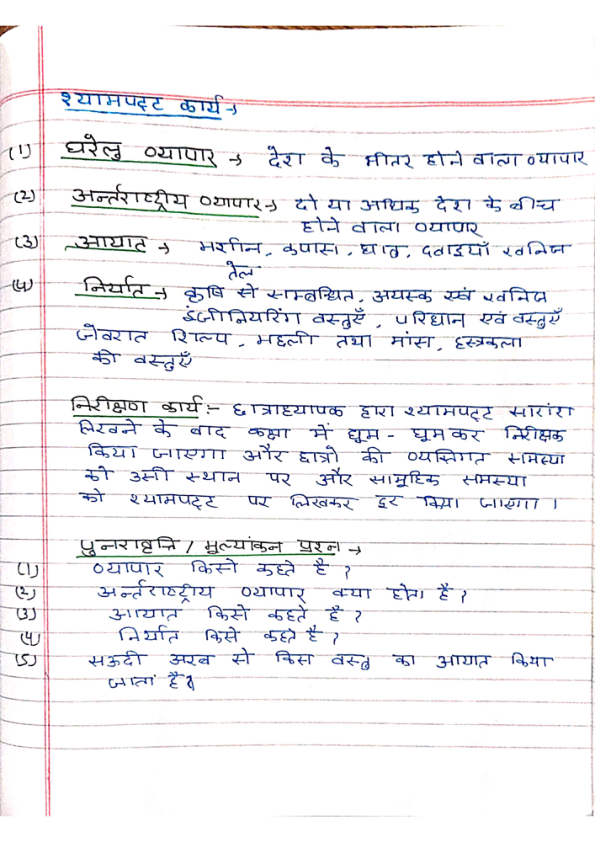 श्यामपट्ट कार्य →
(1) घरेलु व्यापार → देश के भीतर होने वाला व्यापार
(2) अर्न्तराष्ट्रीय व्यापार → दो या अधिक देश के बीच
होने वाला व्यापार
(3) आयात → मशीन, कपास, धातु, दवाइयाँ खनिज
तेल
(4) निर्यात → कृषि से सम्बन्धित, अयस्क एवं खनिज
इंजीनियरिंग वस्तुएँ, परिधान एवं वस्तुएँ
जेवरात शिल्प, मछली तथा मांस, हस्तकला
की वस्तुएँ
निरीक्षण कार्य :- छात्राध्यापक द्वारा श्यामपट्ट सारांश
लिखने के बाद कक्षा में घूम - घूम कर निरीक्षक
किया जाएगा और छात्रो की व्यक्तिगत समस्या
को उसी स्थान पर और सामूहिक समस्या
को श्यामपट्ट पर लिखकर दूर किया जाएगा ।
पुनरावृत्ति / मूल्यांकन प्रश्न →
(1) व्यापार किसे कहते है ?
(2) अर्न्तराष्ट्रीय व्यापार क्या होता है ?
(3) आयात किसे कहते है ?
(4) निर्यात किसे कहते है ?
(5) सऊदी अरब से किस वस्तु का आयात किया
जाता है।